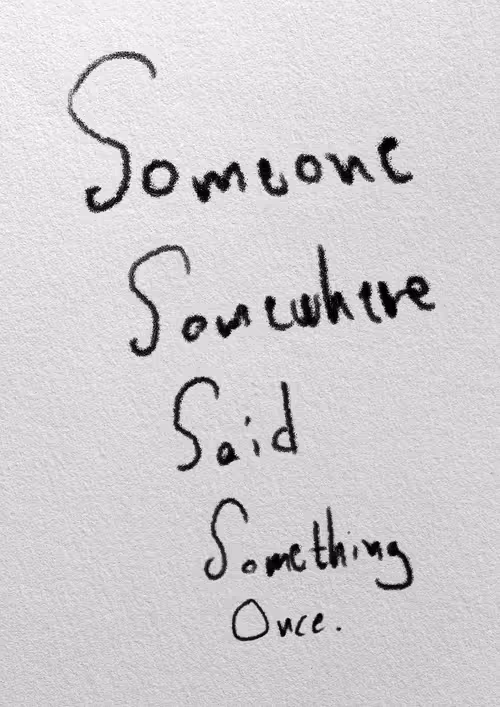 Someone
Somewhere
Said
Something
Once.